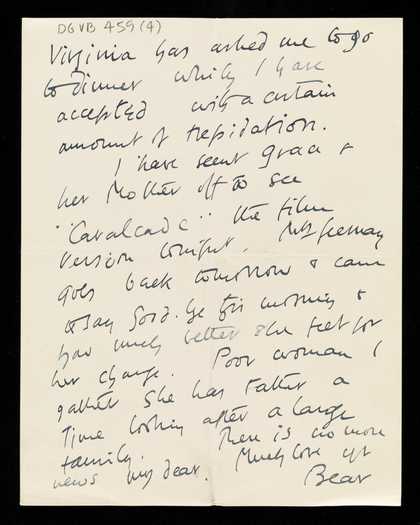 DGVB 459 (4)
Virginia has asked me to go
to dinner which I have
accepted with a certain
amount of trepidation.
I have sent Grace &
her Mother off to see
"Cavalcade" the film
version tonight. Mrs
goes back tomorrow & came
to say Good-bye this morning &
how much better she felt for
her change. Poor woman I
gather she has rather a
time looking after a large
family. There is no more
news my dear. Much love
Bear